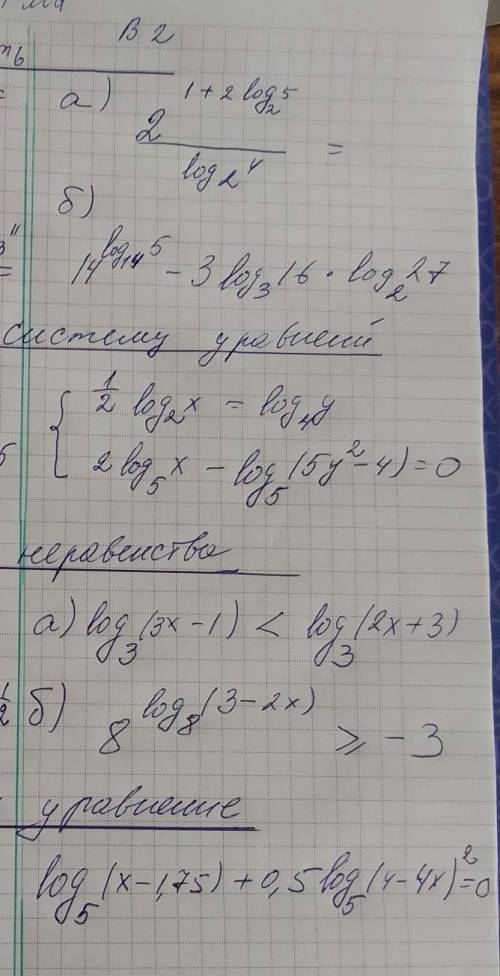 В 2
а) 2^{1+2 log_2 5} / log_2 4 =
б)
14^{log_{14} 5} - 3 log_3 16 · log_2 27
систему уравнений
{ 1/2 log_2 x = log_4 y
2 log_5 x - log_5 (5y^2 - 4) = 0
неравенства
а) log_3 (3x - 1) < log_3 (2x + 3)
б) 8^{log_8 (3 - 2x)} ⩾ -3
уравнение
log_5 (x - 1,75) + 0,5 log_5 (4 - 4x)^2 = 0